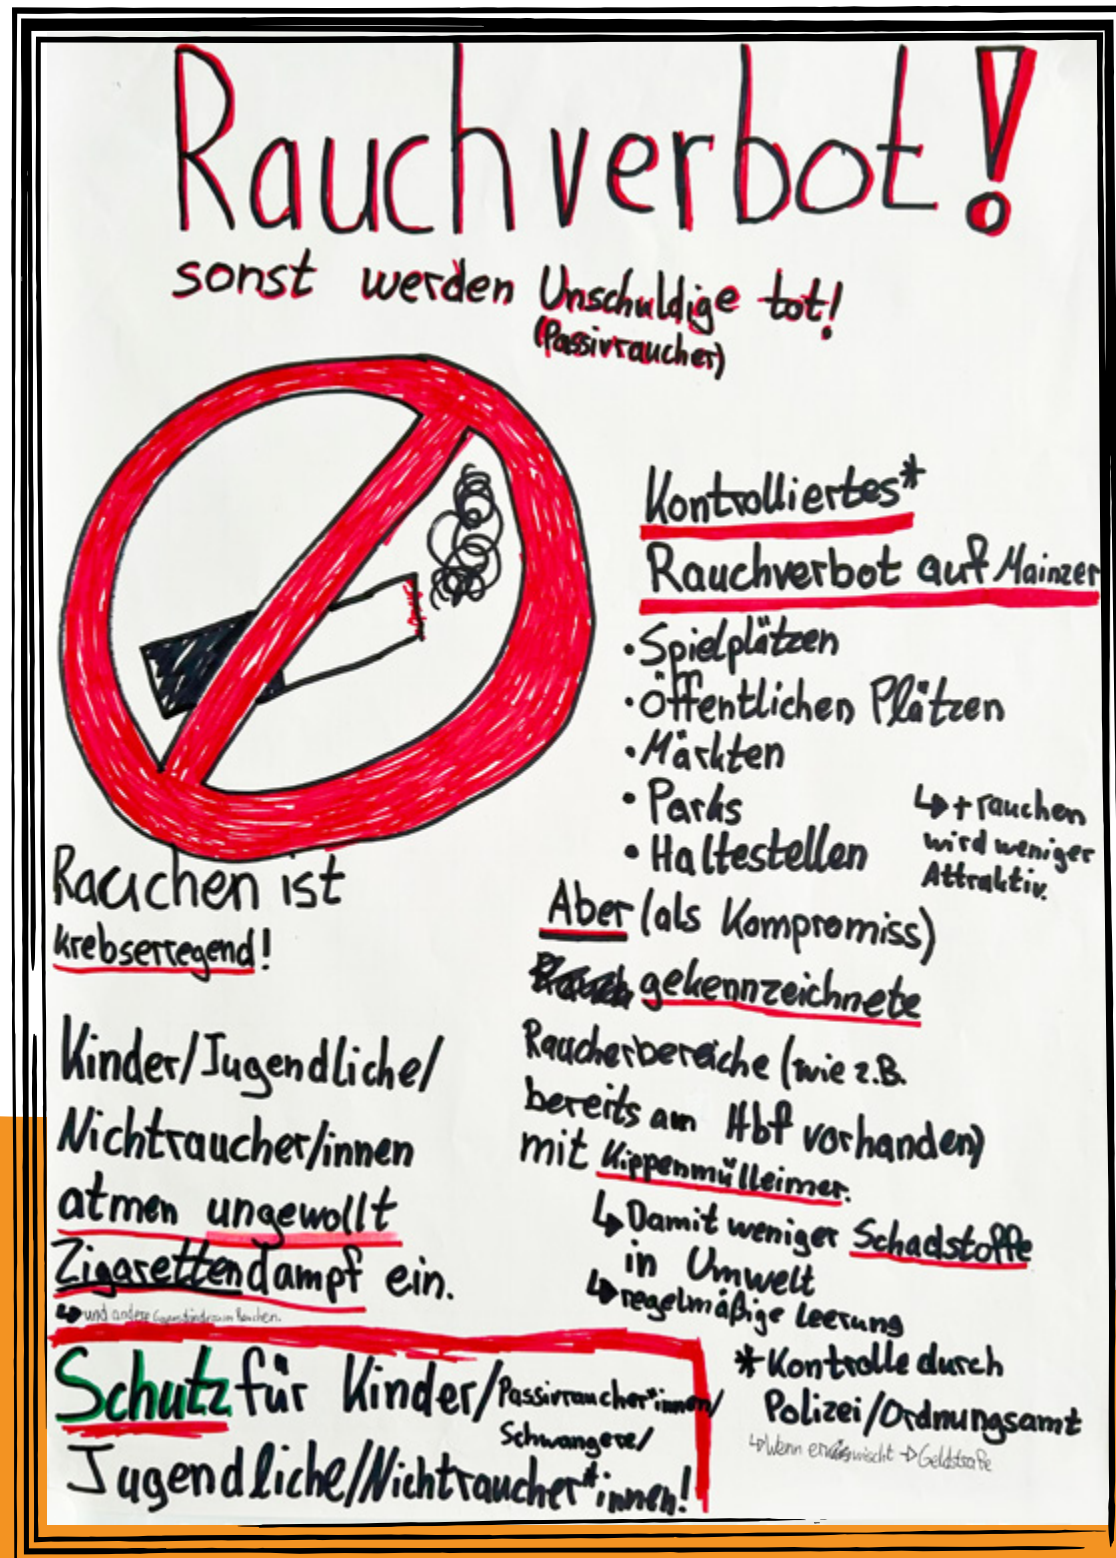 Rauchverbot!
sonst werden Unschuldige tot!
(Passivraucher)
Kontrolliertes*
Rauchverbot auf Mainzer
• Spielplätzen
• Öffentlichen Plätzen
• Märkten
• Parks
• Haltestellen
↳ + rauchen
wird weniger
Attraktiv.
Aber (als Kompromiss)
gekennzeichnete
Raucherbereiche (wie z.B.
bereits am Hbf vorhanden)
mit Kippenmülleimer.
↳ Damit weniger Schadstoffe
in Umwelt
↳ regelmäßige Leerung
* Kontrolle durch
Polizei/Ordnungsamt
↳ Wenn erwischt → Geldstrafe
Rauchen ist
krebserregend!
Kinder/Jugendliche/
Nichtraucher/innen
atmen ungewollt
Zigarettendampf ein.
↳ und andere Gegenstände zum Rauchen.
Schutz für Kinder/Passivraucher*innen/
Schwangere/
Jugendliche/Nichtraucher*innen!